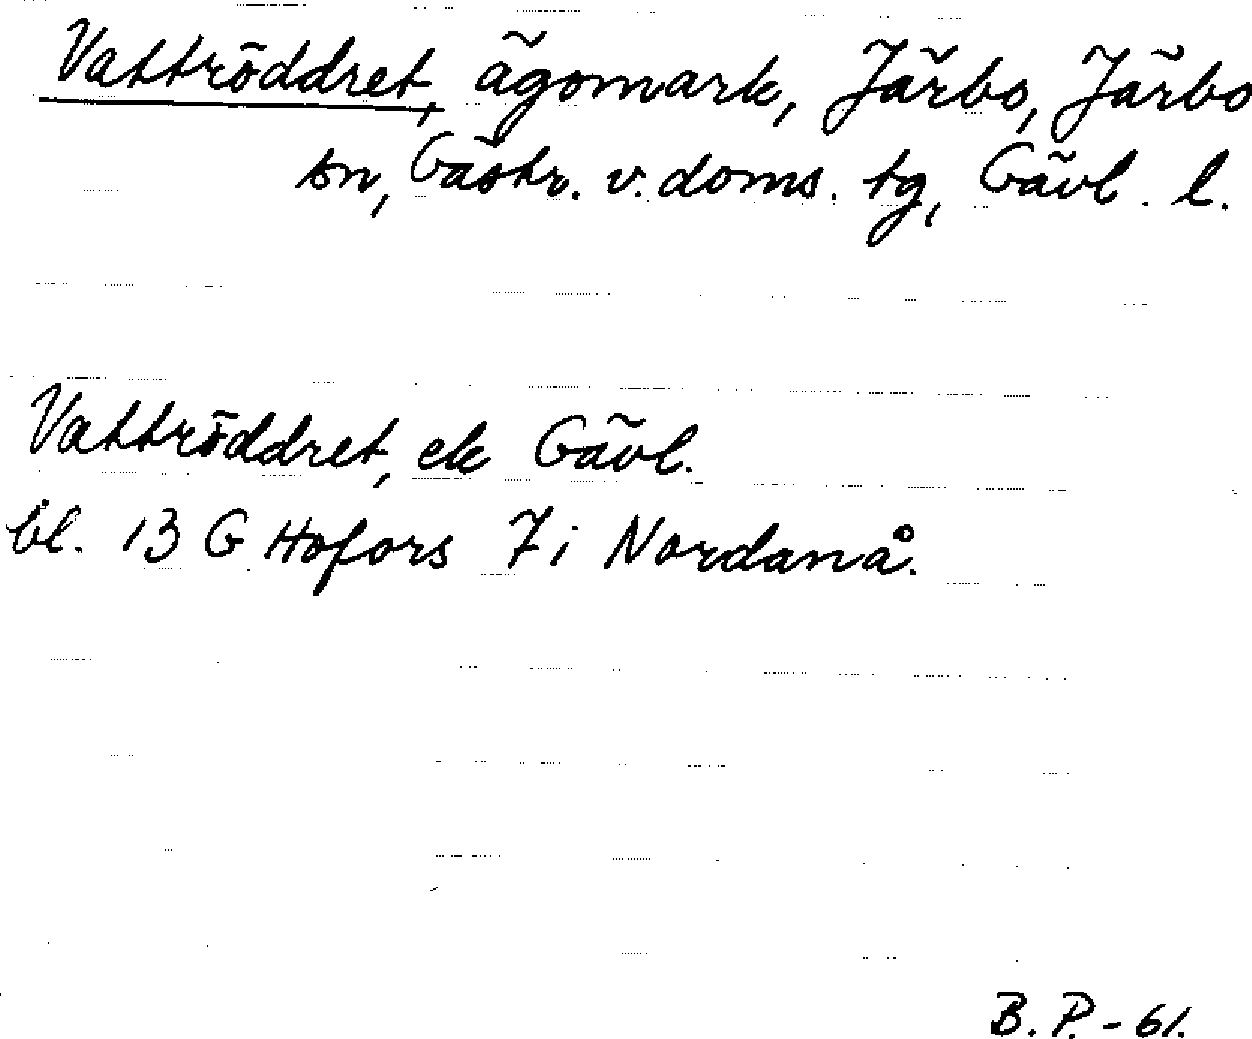 Vattröddret, ägomark, Järbo, Järbo
sn, Gästr. v. doms. tg, Gävl. l.
Vattröddret, ek Gävl.
bl. 13 G Hofors 7 i Nordanå.
B. P. - 61.